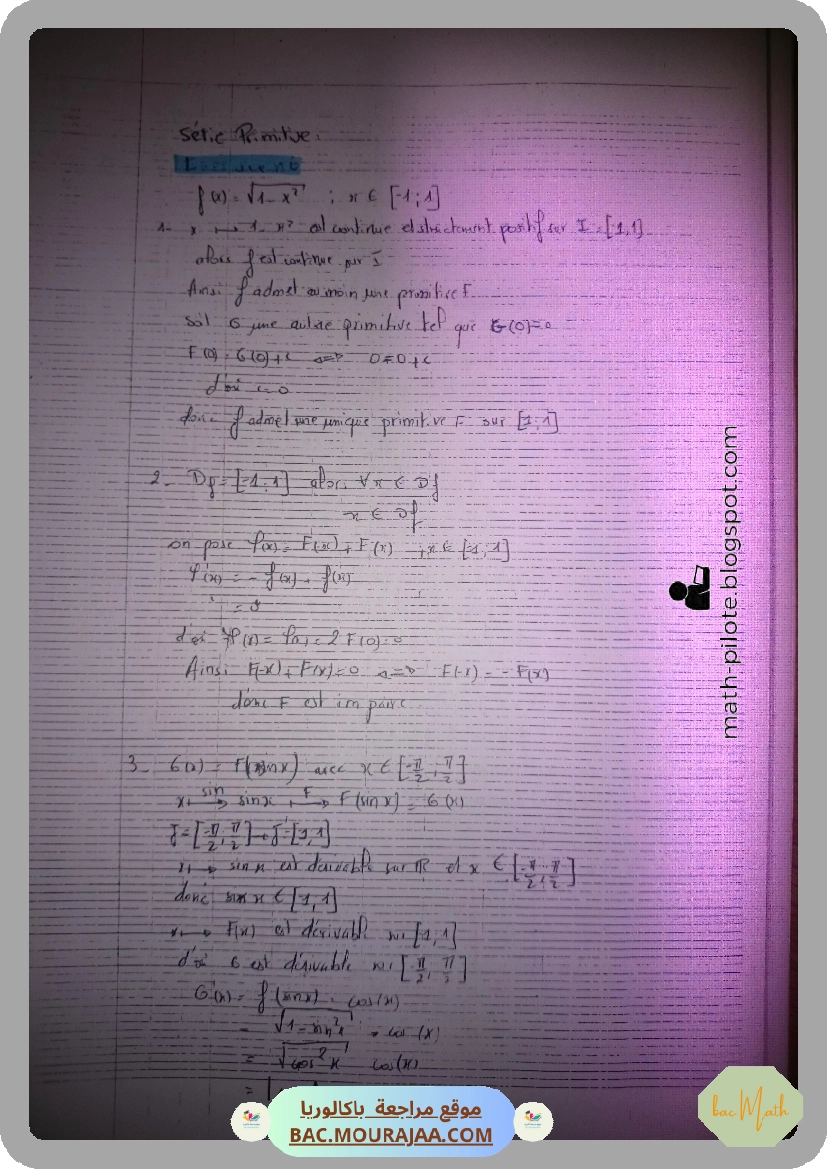 Série Primitive.
f(x) = √(1-x²) ; x ∈ [-1;1]
1- x ↦ 1-x² est continue et strictement positif sur I = [-1,1]
alors f est continue sur I
Ainsi f admet au moin une primitive F
Soit G une autre primitive tel que G(0)=0
F(0) = G(0)+c <=> 0=0+c
d'où c=0
donc f admet une unique primitive F sur [-1;1]
2- Df=[-1;1] alors ∀x ∈ Df
-x ∈ Df
on pose φ(x)= F(-x)+F(x) ; x ∈ [-1,1]
φ'(x) = - f(x) + f(x)
= 0
d'où φ(x) = = 2F(0)=0
Ainsi F(-x)+F(x)=0 <=> F(-x) = -F(x)
donc F est impaire
3- G(x) = F(sinx) avec x ∈ [-π/2, π/2]
x sin→ sinx F→ F(sinx) = G(x)
J=[-π/2, π/2] [-1,1]
x ↦ sin x est dérivable sur IR et x ∈ [-π/2, π/2]
donc sin x ∈ [-1,1]
x ↦ F(x) est dérivable sur [-1,1]
d'où G est dérivable sur [-π/2, π/2]
G'(x) = f(sinx) . cos(x)
= √(1-sin²x) . cos(x)
= √(cos²x) cos(x)
=
math-pilote.blogspot.com
موقع مراجعة باكالوريا
BAC.MOURAJAA.COM
bac Math